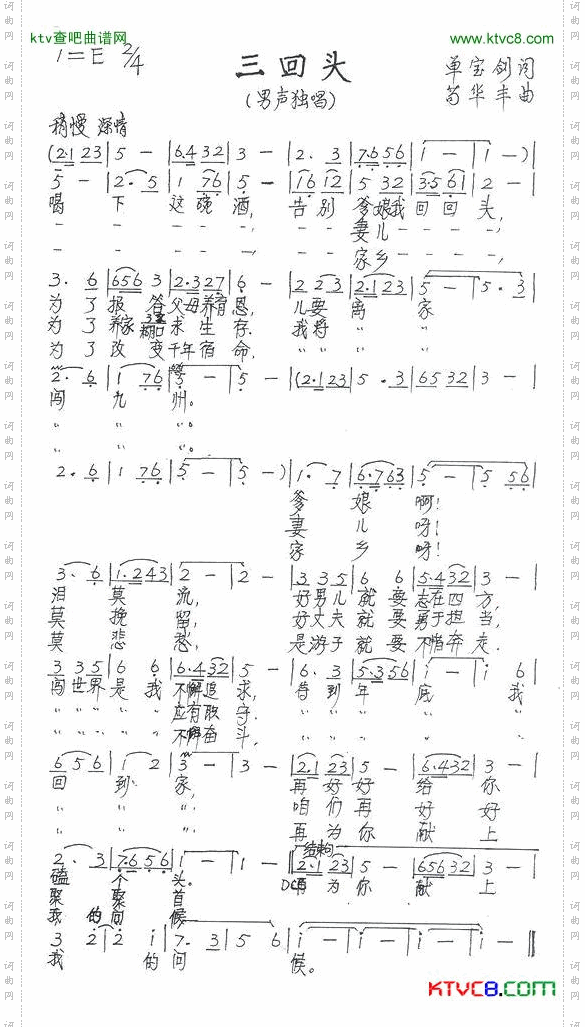 ktv查吧曲谱网
www.ktvc8.com
1=E 2/4
三回头
(男声独唱)
单宝剑词
苟华丰曲
稍慢 深情
(2·1 23 | 5 - | 6·4 32 | 3 - | 2· 3 | 7·6 56 | i - | i - ) |
5 - | 2· 5 | 1 76 | 5 - | 16 12 | 5 32 | 3·5 61 | 2 - |
喝 下 这碗酒, 告别 爹娘我回回头,
- - - - - - 妻儿 - - -,
- - - - - - 家乡 - - -,
3· 6 | 656 3 | 2·3 27 | 6 - | 2 2 3 | 2·1 23 | 5 - | 5· 3 |
为了报答父母养育恩, 儿要离 家
为了养家糊口求生存, 我将 " "
为了改变千年宿命, " " " "
2· 6 | 1 76 | 5 - | 5 - | (2·1 23 | 5 ·3 | 65 32 | 3 - |
闯九州。
" " "。
" " "。
2· 6 | 1 76 | 5 - | 5 - ) | 1· 7 | 6·7 63 | 5 - | 5 56 |
爹娘啊!
妻儿呀!
家乡呀!
3· 6 | 1·2 43 | 2 - | 2 - | 3 3 5 | 6 6 | 5·4 32 | 3 - |
泪莫流, 好男儿就要志在四方,
莫挽留, 好丈夫就要勇于担当,
莫悲愁, 是游子就要不惜奔走.
3 3 5 | 6 6 | 6·4 32 | 5 - | 6· 3 | 5·3 56 | i - | i 6 |
闯世界是我不懈追求, 等到年底我
" " " " " 应有职守. " " " " "
" " " " " 不懈奋斗, " " " " "
6 5 6 | 1 2 | 3 - | 3 - | 2·1 23 | 5 - | 6·4 32 | 3 - |
回到家, 再好好给你
" " " 咱们再好好
" " " 再为你献上
结束句
2· 3 | 7·6 56 | 1 - | 1 - | 2·1 23 | 5 - | 656 32 | 3 - |
磕个头。 D.C. 再为你献上
聚聚首
我的问候
3 2 | 2 i | 7· 3 | 5 6 | i - | i - | i - | i - ‖
我的问候。
KTVC8.COM
词曲网